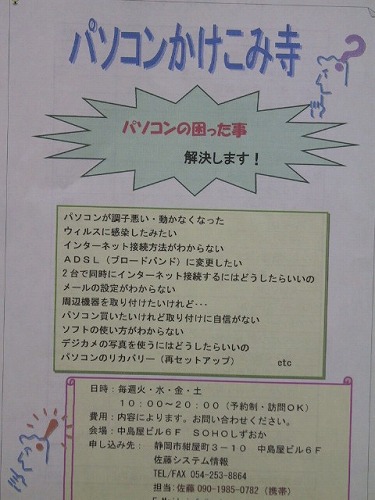 パソコンかけこみ寺
パソコンの困った事
解決します!
パソコンが調子悪い・動かなくなった
ウィルスに感染したみたい
インターネット接続方法がわからない
ADSL(ブロードバンド)に変更したい
2台で同時にインターネット接続するにはどうしたらいいの
メールの設定がわからない
周辺機器を取り付けたいけれど・・・
パソコン買いたいけれど取り付けに自信がない
ソフトの使い方がわからない
デジカメの写真を使うにはどうしたらいいの
パソコンのリカバリー(再セットアップ) etc
日時:毎週火・水・金・土
10:00~20:00(予約制・訪問OK)
費用:内容によります。お問い合わせください。
会場:中島屋ビル6F SOHOしずおか
申し込み先: 静岡市紺屋町3-10 中島屋ビル6F
佐藤システム情報
TEL/FAX 054-253-8864
担当:佐藤 090-1985-0782(携帯)